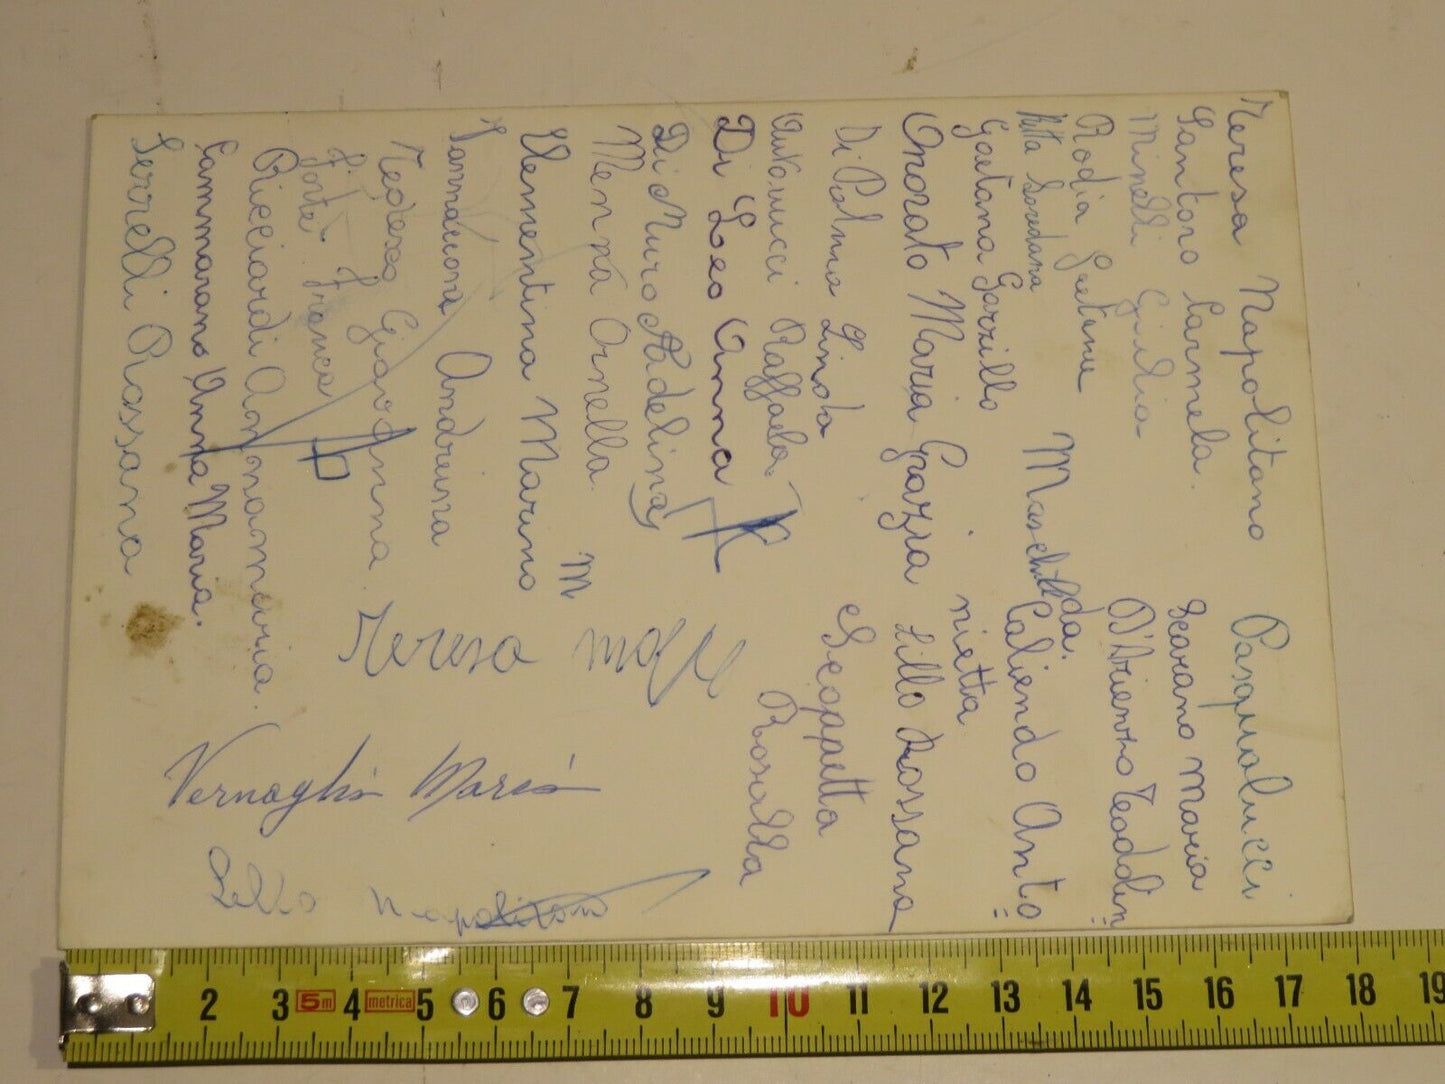 Teresa Napolitano
Santoro Carmela.
Minelli Giulia
Rodia Gaetana
Gaetana Garzillo
Onorato Maria Grazia
Di Palma Linda
Antonucci Raffaela
Di Leo Anna
Di Muro Adelina
Menna Ornella.
Clementina Marino
M
Iannaccone Andreina
Tedesco Giovanna.
Forte Franca
Ricciardi Annamaria.
Cammarano Anna Maria.
Serrelli Rossana
Pasqualucci
Scarano Maria
D'Arienzo Teodolin
Maschilda.
Caliendo Anto
nietta
Lillo Rossana
Scoppetta
Rosalba
Teresa
Vernaglia Maria
Lello Napolitano
2 3 5m 4 metrica 5 6 7 8 9 10 11 12 13 14 15 16 17 18 19